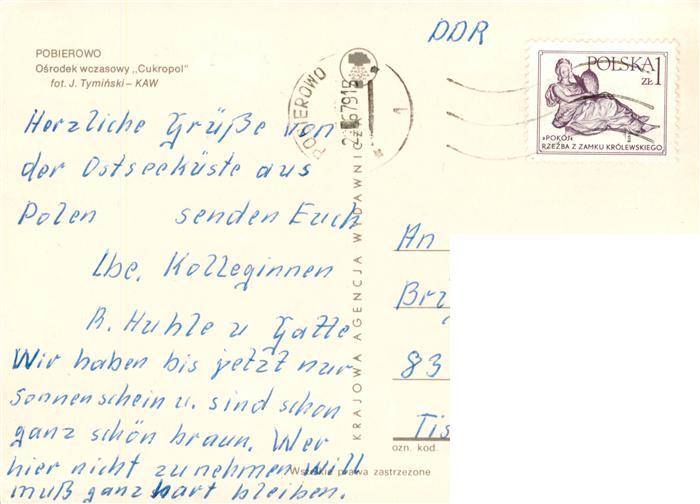 POBIEROWO
Ośrodek wczasowy „Cukropol"
fot. J. Tymiński – KAW
DDR
POLSKA 1
ZŁ
»POKÓJ«
RZEŹBA Z ZAMKU KRÓLEWSKIEGO
POBIEROWO
1
Herzliche Grüße von
der Ostseeküste aus
Polen senden Euch
Lbe. Kolleginnen
R. Huhle u Gatte
Wir haben bis jetzt nur
Sonnenschein u. sind schon
ganz schön braun. Wer
hier nicht zunehmen will
muß ganz hart bleiben.
KRAJOWA AGENCJA WYDAWNICZA
An
Brz
83
Tis
ozn. kod.
Wszelkie prawa zastrzeżone